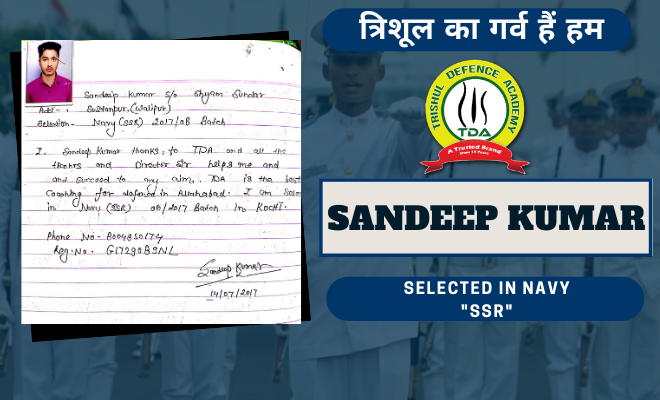 Sandeep Kumar S/o Shyam Sundar
Add: - Sultanpur, (Walipur)
Selection - Navy (SSR) 2017/08 Batch
I. Sandeep Kumar thanks, to TDA and all the
thanks and Director Sir helps me and
and succeed to my aim. TDA is the best
coaching for defence in Allahabad. I am
in Navy (SSR) 08/2017 Batch in KOCHI.
Phone No - 8004850174
Reg. No -
Sandeep Kumar
14/07/2017
त्रिशूल का गर्व हैं हम
TRISHUL DEFENCE ACADEMY
TDA
A Trusted Brand
SANDEEP KUMAR
SELECTED IN NAVY
"SSR"